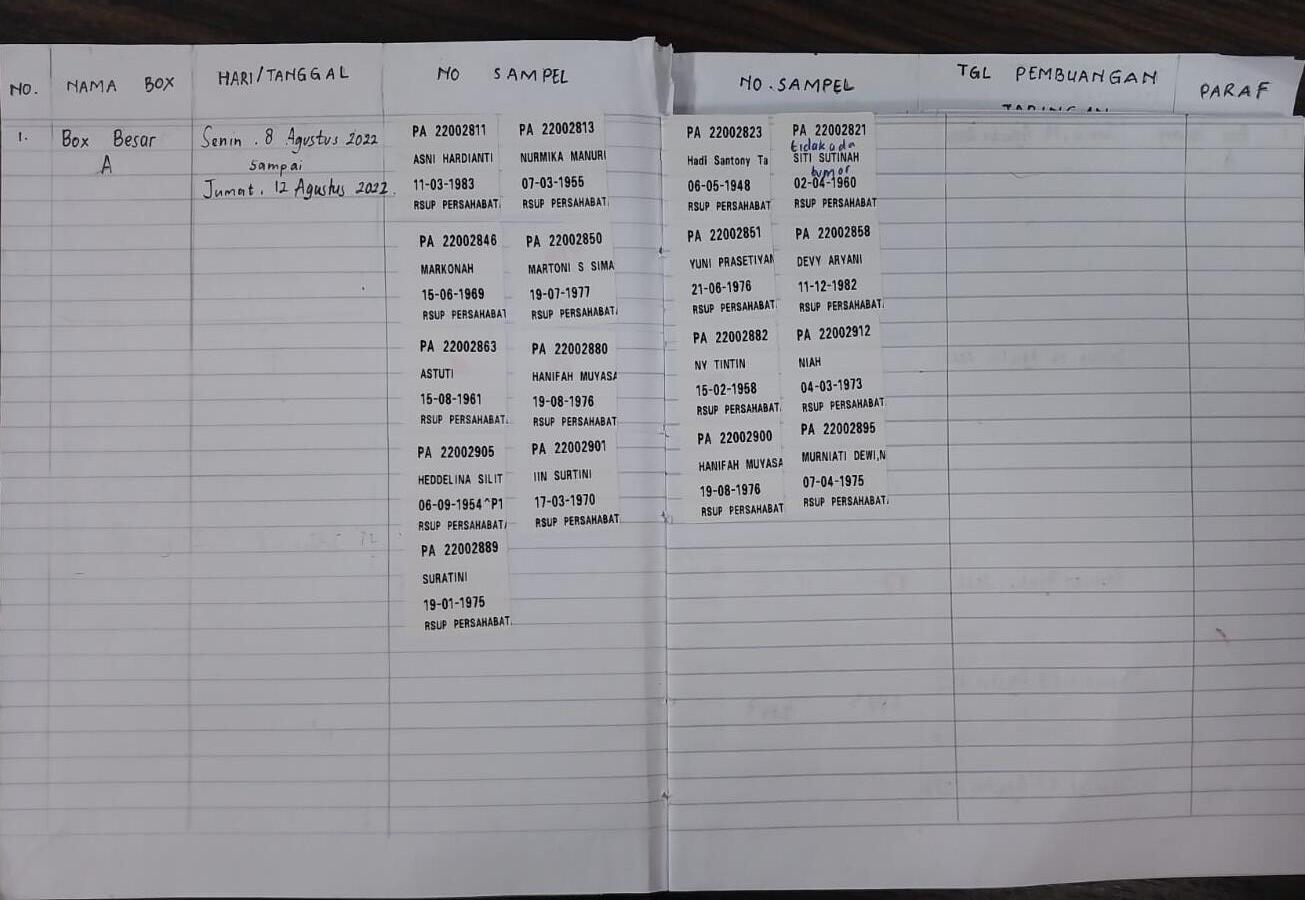 NO.
NAMA BOX
HARI/TANGGAL
NO SAMPEL
NO. SAMPEL
TGL PEMBUANGAN
PARAF
1.
Box Besar
A
Senin. 8 Agustus 2022
sampai
Jumat. 12 Agustus 2022.
PA 22002811
ASNI HARDIANTI
11-03-1983
RSUP PERSAHABAT
PA 22002813
NURMIKA MANURI
07-03-1955
RSUP PERSAHABAT
PA 22002846
MARKONAH
15-06-1969
RSUP PERSAHABAT
PA 22002850
MARTONI S SIMA
19-07-1977
RSUP PERSAHABAT
PA 22002863
ASTUTI
15-08-1961
RSUP PERSAHABAT
PA 22002880
HANIFAH MUYASA
19-08-1976
RSUP PERSAHABAT
PA 22002905
HEDDELINA SILIT
06-09-1954^P1
RSUP PERSAHABAT
PA 22002901
IIN SURTINI
17-03-1970
RSUP PERSAHABAT
PA 22002889
SURATINI
19-01-1975
RSUP PERSAHABAT
PA 22002823
Hadi Santony Ta
06-05-1948
RSUP PERSAHABAT
PA 22002821
tidak ada
SITI SUTINAH
tumor
02-04-1960
RSUP PERSAHABAT
PA 22002851
YUNI PRASETIYAN
21-06-1976
RSUP PERSAHABAT
PA 22002858
DEVY ARYANI
11-12-1982
RSUP PERSAHABAT
PA 22002882
NY TINTIN
15-02-1958
RSUP PERSAHABAT
PA 22002912
NIAH
04-03-1973
RSUP PERSAHABAT
PA 22002900
HANIFAH MUYASA
19-08-1976
RSUP PERSAHABAT
PA 22002895
MURNIATI DEWI,N
07-04-1975
RSUP PERSAHABAT